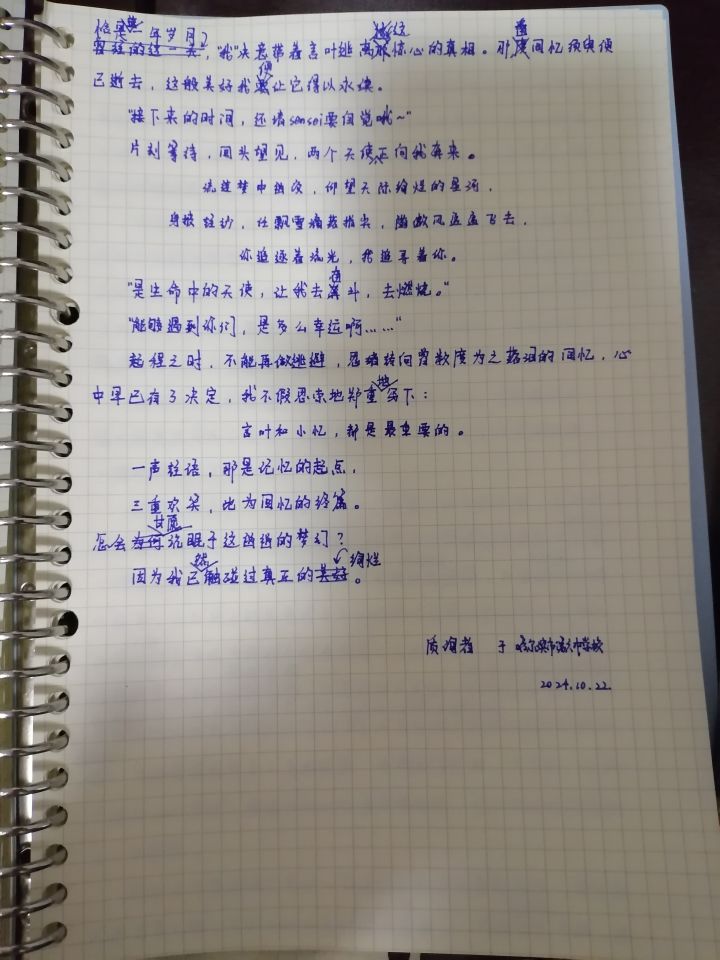 "我"决意带着言叶逃离那惊心的真相。那段回忆须臾便
已逝去，这般美好我要让它得以永续。
"接下来的时间，还请sensei要自觉哦～"
片刻等待，回头望见，两个天使正向我奔来。
流连梦中幽欢，仰望天际绚烂的星河，
身披轻纱，任飘雪滴落指尖，幽微风盈盈飞去，
你追逐着流光，我追寻着你。
"是生命中的天使，让我去奋斗，去燃烧。"
"能够遇到你们，是多么幸运啊……"
起程之时，不能再做逃避，思绪转向曾数度为之落泪的回忆，心
中早已有了决定，我不假思索地郑重写下：
言叶和小忆，都是最重要的。
一声轻语，那是记忆的起点，
三重欢笑，此为回忆的终篇。
怎会甘愿沉眠于这幽幽的梦幻？
因为我已然触碰过真正的绚烂。
质询者 于
2024.10.22